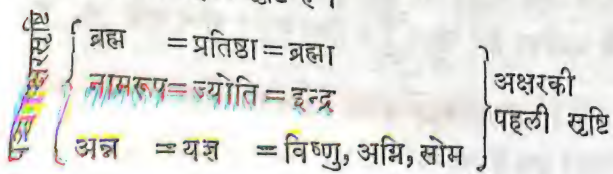 ब्रह्म = प्रतिष्ठा = ब्रह्मा
नामरूप = ज्योति = इन्द्र
अन्न = यज्ञ = विष्णु, अग्नि, सोम
अक्षरकी
पहली सृष्टि